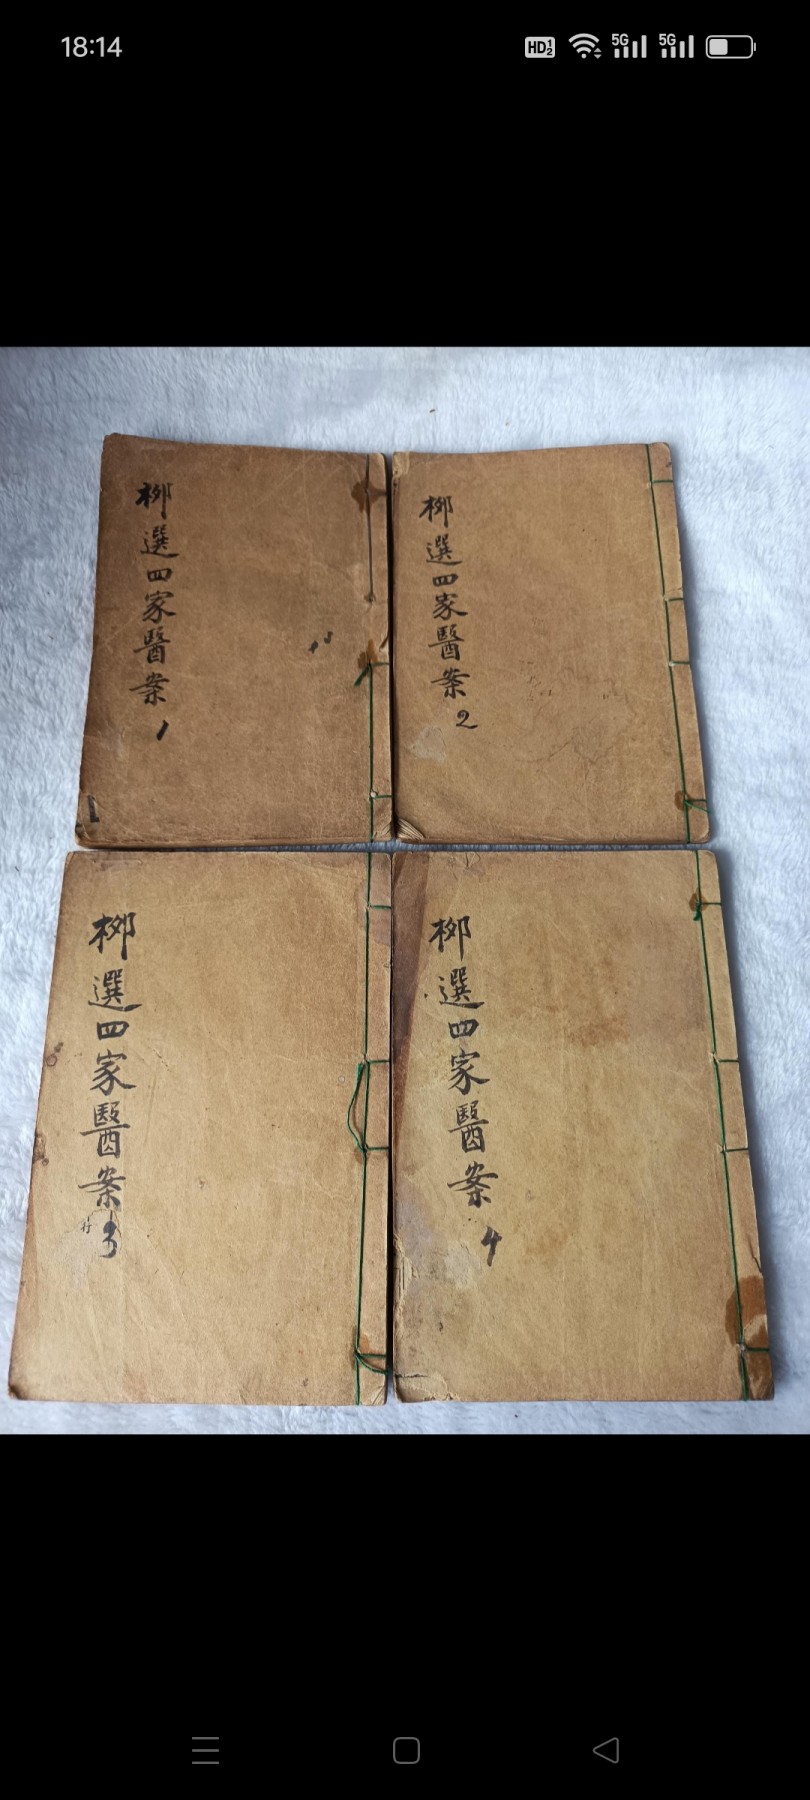 18:14
HD 1 2
5G
5G
柳選四家醫案
1
柳選四家醫案
2
柳選四家醫案
3
柳選四家醫案
4